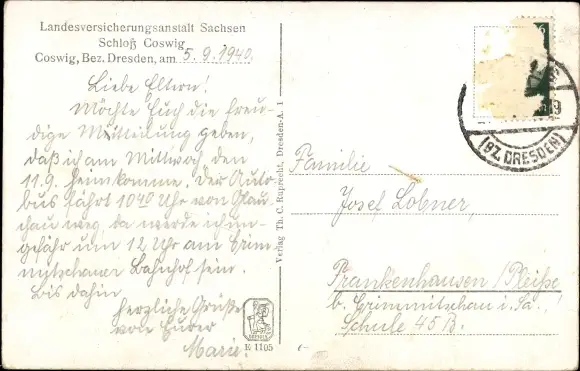 Landesversicherungsanstalt Sachsen
Schloß Coswig
Coswig, Bez. Dresden, am 5.9.1940.
Liebe Eltern!
Möchte Euch die freu-
dige Mitteilung geben,
daß ich am Mittwoch, den
11.9. heimkomme. Der Auto-
bus fährt 10 40 Uhr von Glau-
chau weg, da werde ich un-
gefähr um 12 Uhr am Crim-
mitschauer Bahnhof sein.
Bis dahin
herzliche Grüße
von Eurer
Marie.
Verlag Th. C. Ruprecht, Dresden-A. 1
E 1105
6
(BZ. DRESDEN)
Familie
Josef Lobner,
Frankenhausen/Pleiße
b. Crimmitschau i. Sa.,
Schule 45 B.